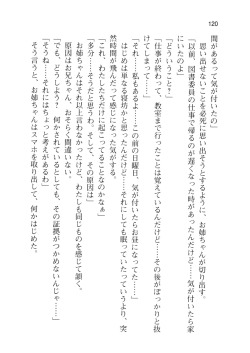 120
間があるって気が付いたの」
思い出せないことを必死に思い出そうとするように、お姉ちゃんが切り出す。
「以前、図書委員の仕事で帰るのが遅くなった時があったんだけど……気が付いたら家
にいたのよ」
「どういうこと？」
「仕事が終わって、教室まで行ったことは覚えているんだけど……その後がぽっかりと抜
けてしまって……」
「それ……私もあるよ……この前の日曜日、気が付いたらお昼になってた……」
はじめは単なる寝坊かと思ったんだけど……それにしても眠っていたっていうより、突
然時間が飛んだって感じだった気がする。
「多分……そうだと思うわ。そして、その原因は」
「それ……わたしたちだけに起こってることなのかなぁ」
お姉ちゃんはそれ以上言わなかったけど、わたしも同じものを感じて頷く。
原因はお兄ちゃん……おそらく間違いない。
「でも、どうしよう……何かされているとしても、その証拠がつかめないんじゃ……」
「そうね……それにはちょっと考えがあるわ」
そう言うと、お姉ちゃんはスマホを取り出して、何かはじめた。